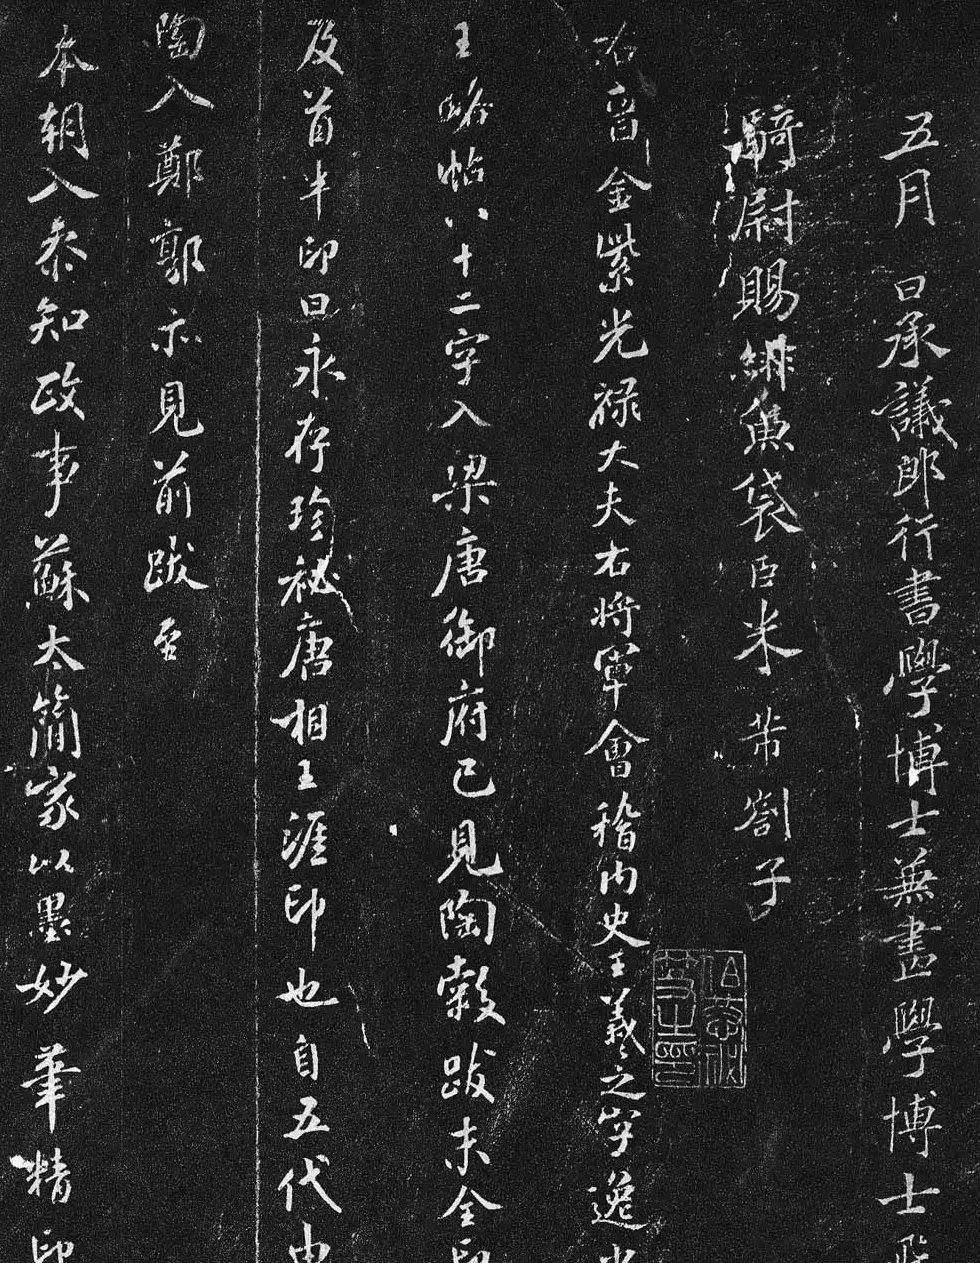 五月 日承議郎行書學博士兼畫學博士
騎尉賜緋魚袋臣米芾劄子
右晉金紫光禄大夫右將軍會稽内史王羲之字逸少
王略帖八十二字入梁唐御府已見陶穀跋末全印
及首半印曰永存珍祕唐相王涯印也自五代由
陶入鄭郭亦見前跋至
本朝入叅知政事蘇太簡家以墨妙筆精印